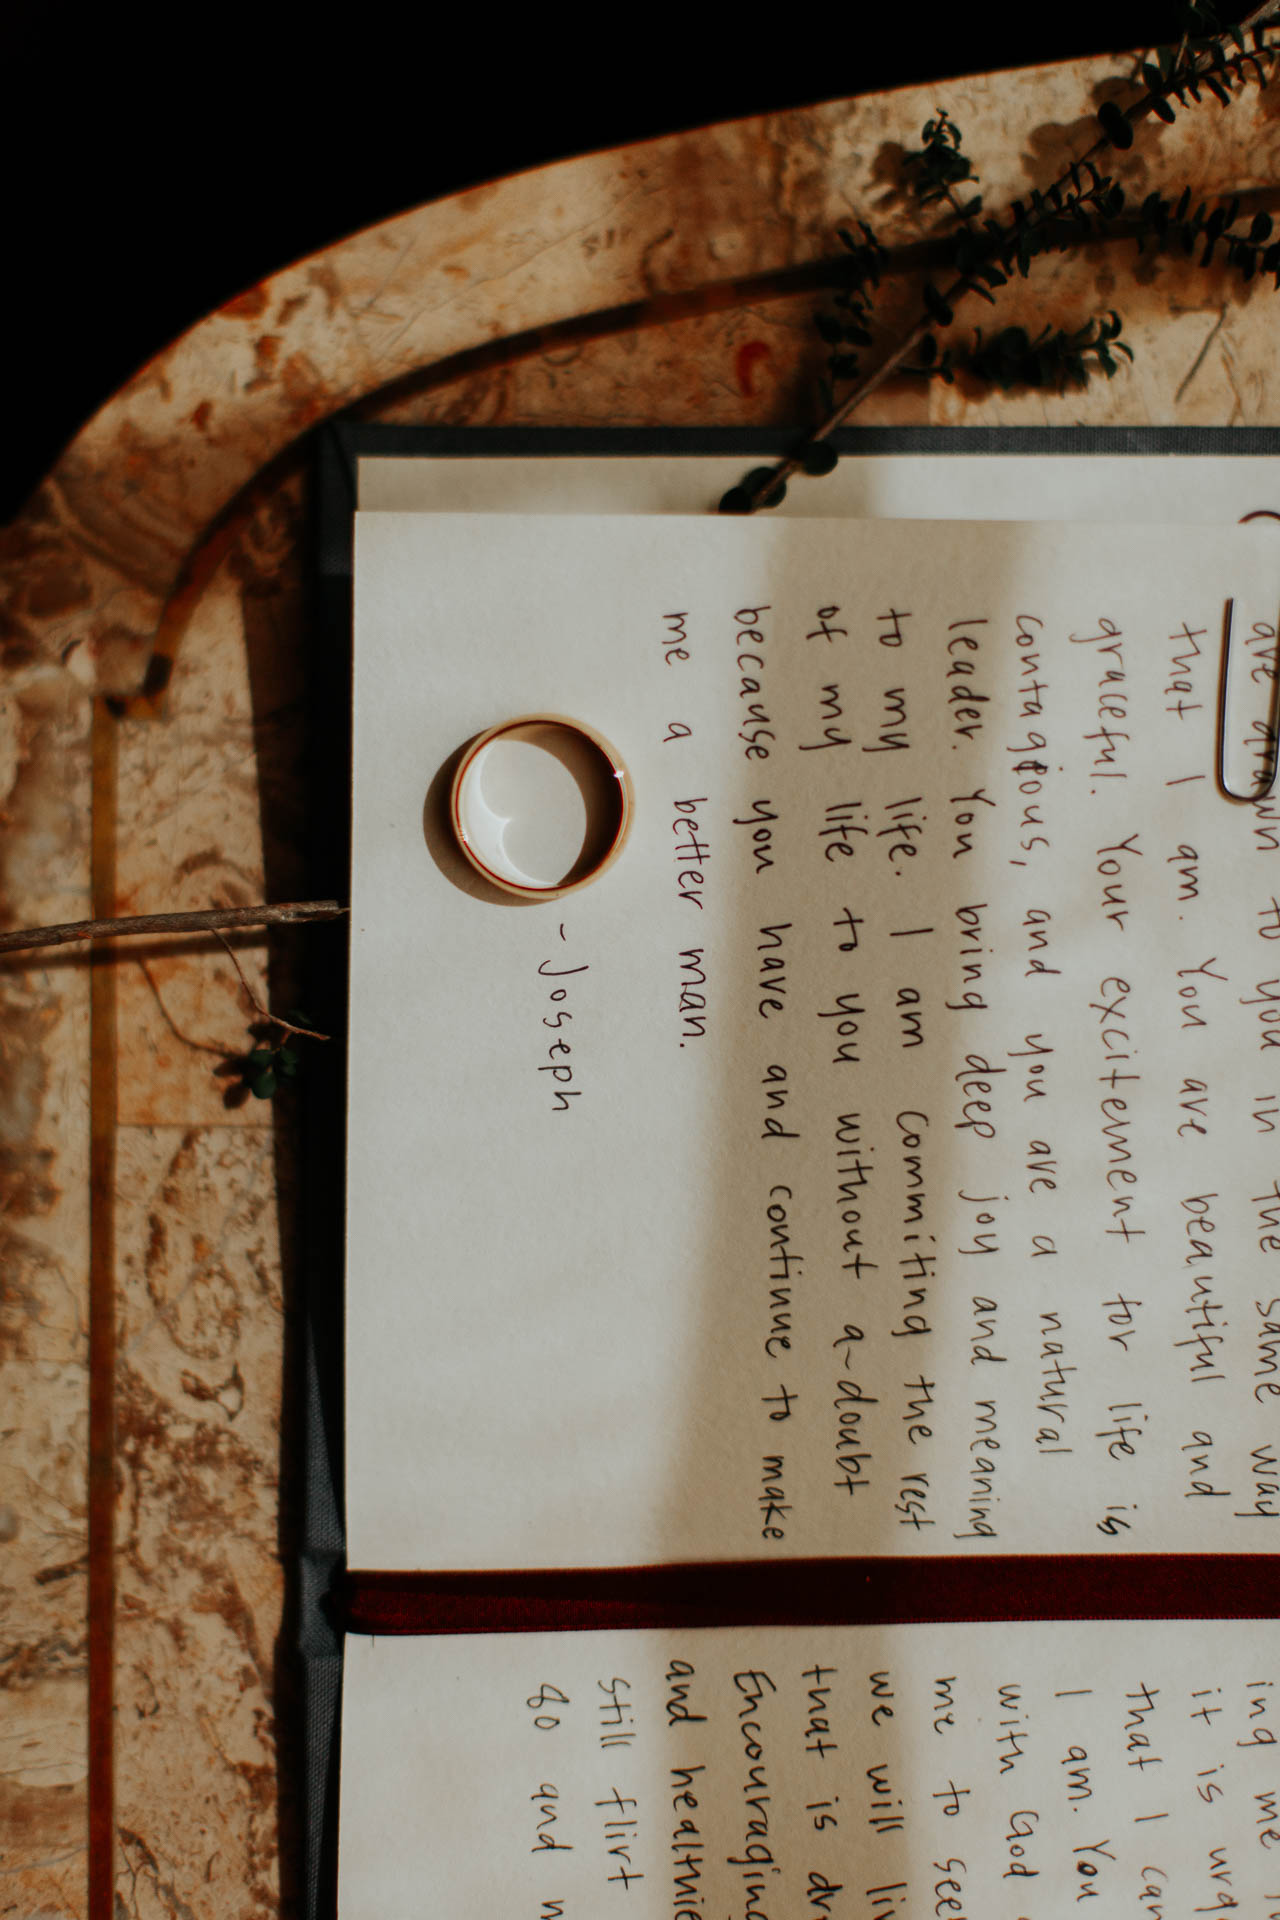 are drawn to you in the same way
that I am. You are beautiful and
graceful. Your excitement for life is
contagious, and you are a natural
leader. You bring deep joy and meaning
to my life. I am commiting the rest
of my life to you without a-doubt
because you have and continue to make
me a better man.
- Joseph
ing me
it is urg
that I can
I am. You
with God
me to see
we will liv
that is dr
Encouraging
and healthie
still flirt
80 and